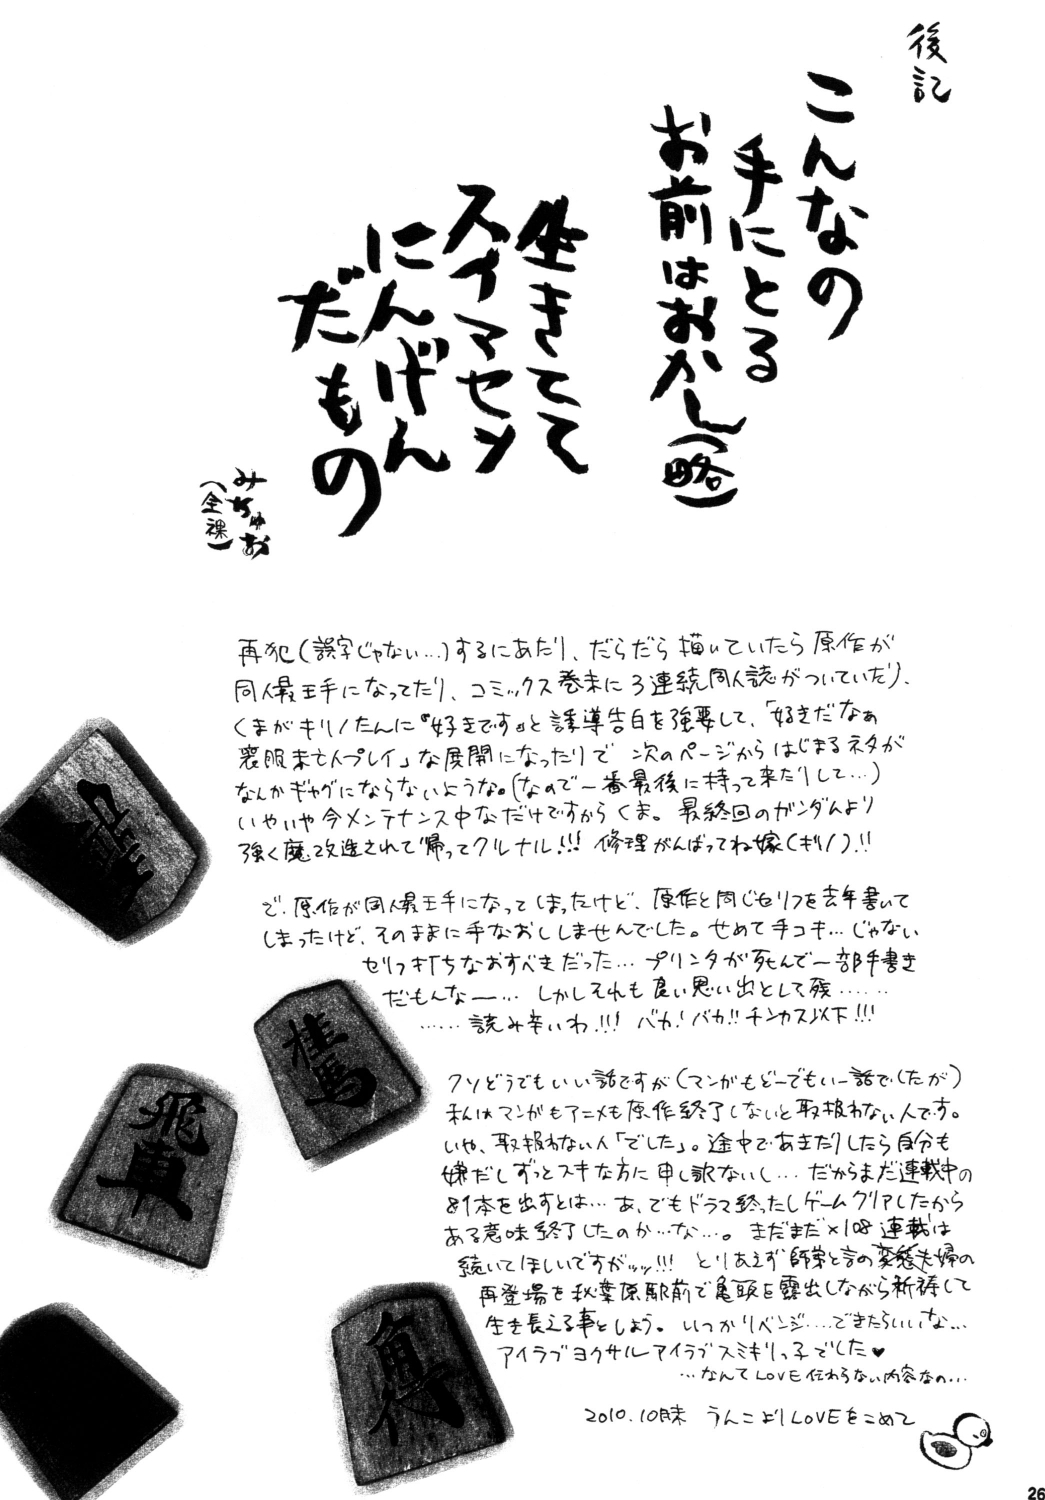 後記
こんなの
手にとる
お前はおかし(略)
生きてて
スイマセン
にんげん
だもの
みちゅお
(全裸)
再犯(誤字じゃない…)するにあたり、だらだら描いていたら原作が
同人最王手になってたり、コミックス巻末に3連続同人誌がついていたり、
くまがキリノたんに『好きです』と誘導告白を強要して、「好きだなぁ
喪服未亡人プレイ」な展開になったりで 次のページからはじまるネタが
なんかギャグにならないような。(なので一番最後に持って来たりして…)
いやいや今メンテナンス中なだけですからくま。最終回のガンダムより
強く魔改造されて帰ってクルナル!!! 修理がんばってね嫁(ギリノ)!!
で、原作が同人最王手になってしまったけど、原作と同じセリフを去年書いて
しまったけど、そのままに手なおししませんでした。せめて手コキ…じゃない
セリフ打ちなおすべきだった… プリンタが死んで一部手書き
だもんなー… しかしそれも良い思い出として残……
……読み辛いわ!!! バカ!バカ!!チンカス以下!!!
クソどうでもいい話ですが(マンがもどーでもいー話でしたが)
私はマンガもアニメも原作終了しないと取扱わない人です。
いや、取扱わない人「でした」。途中であきたりしたら自分も
嫌だしずっとスキな方に申し訳ないし… だからまだ連載中の
81本を出すとは… あ、でもドラマ終ったしゲームクリアしたから
ある意味終了したのか…な…。 まだまだ×108連載は
続いてほしいですがッッ!!! とりあえず師弟と言の変態夫婦の
再登場を秋葉原駅前で亀頭を露出しながら祈祷して
生き長える事としよう。いつかリベンジ……できたらいいな…
アイラブヨクサルアイラブスミキリっ子でした♥
…なんてLOVE伝わらない内容なの…
2010.10月末 うんこよりLOVEをこめて
桂馬
飛車
角行
26